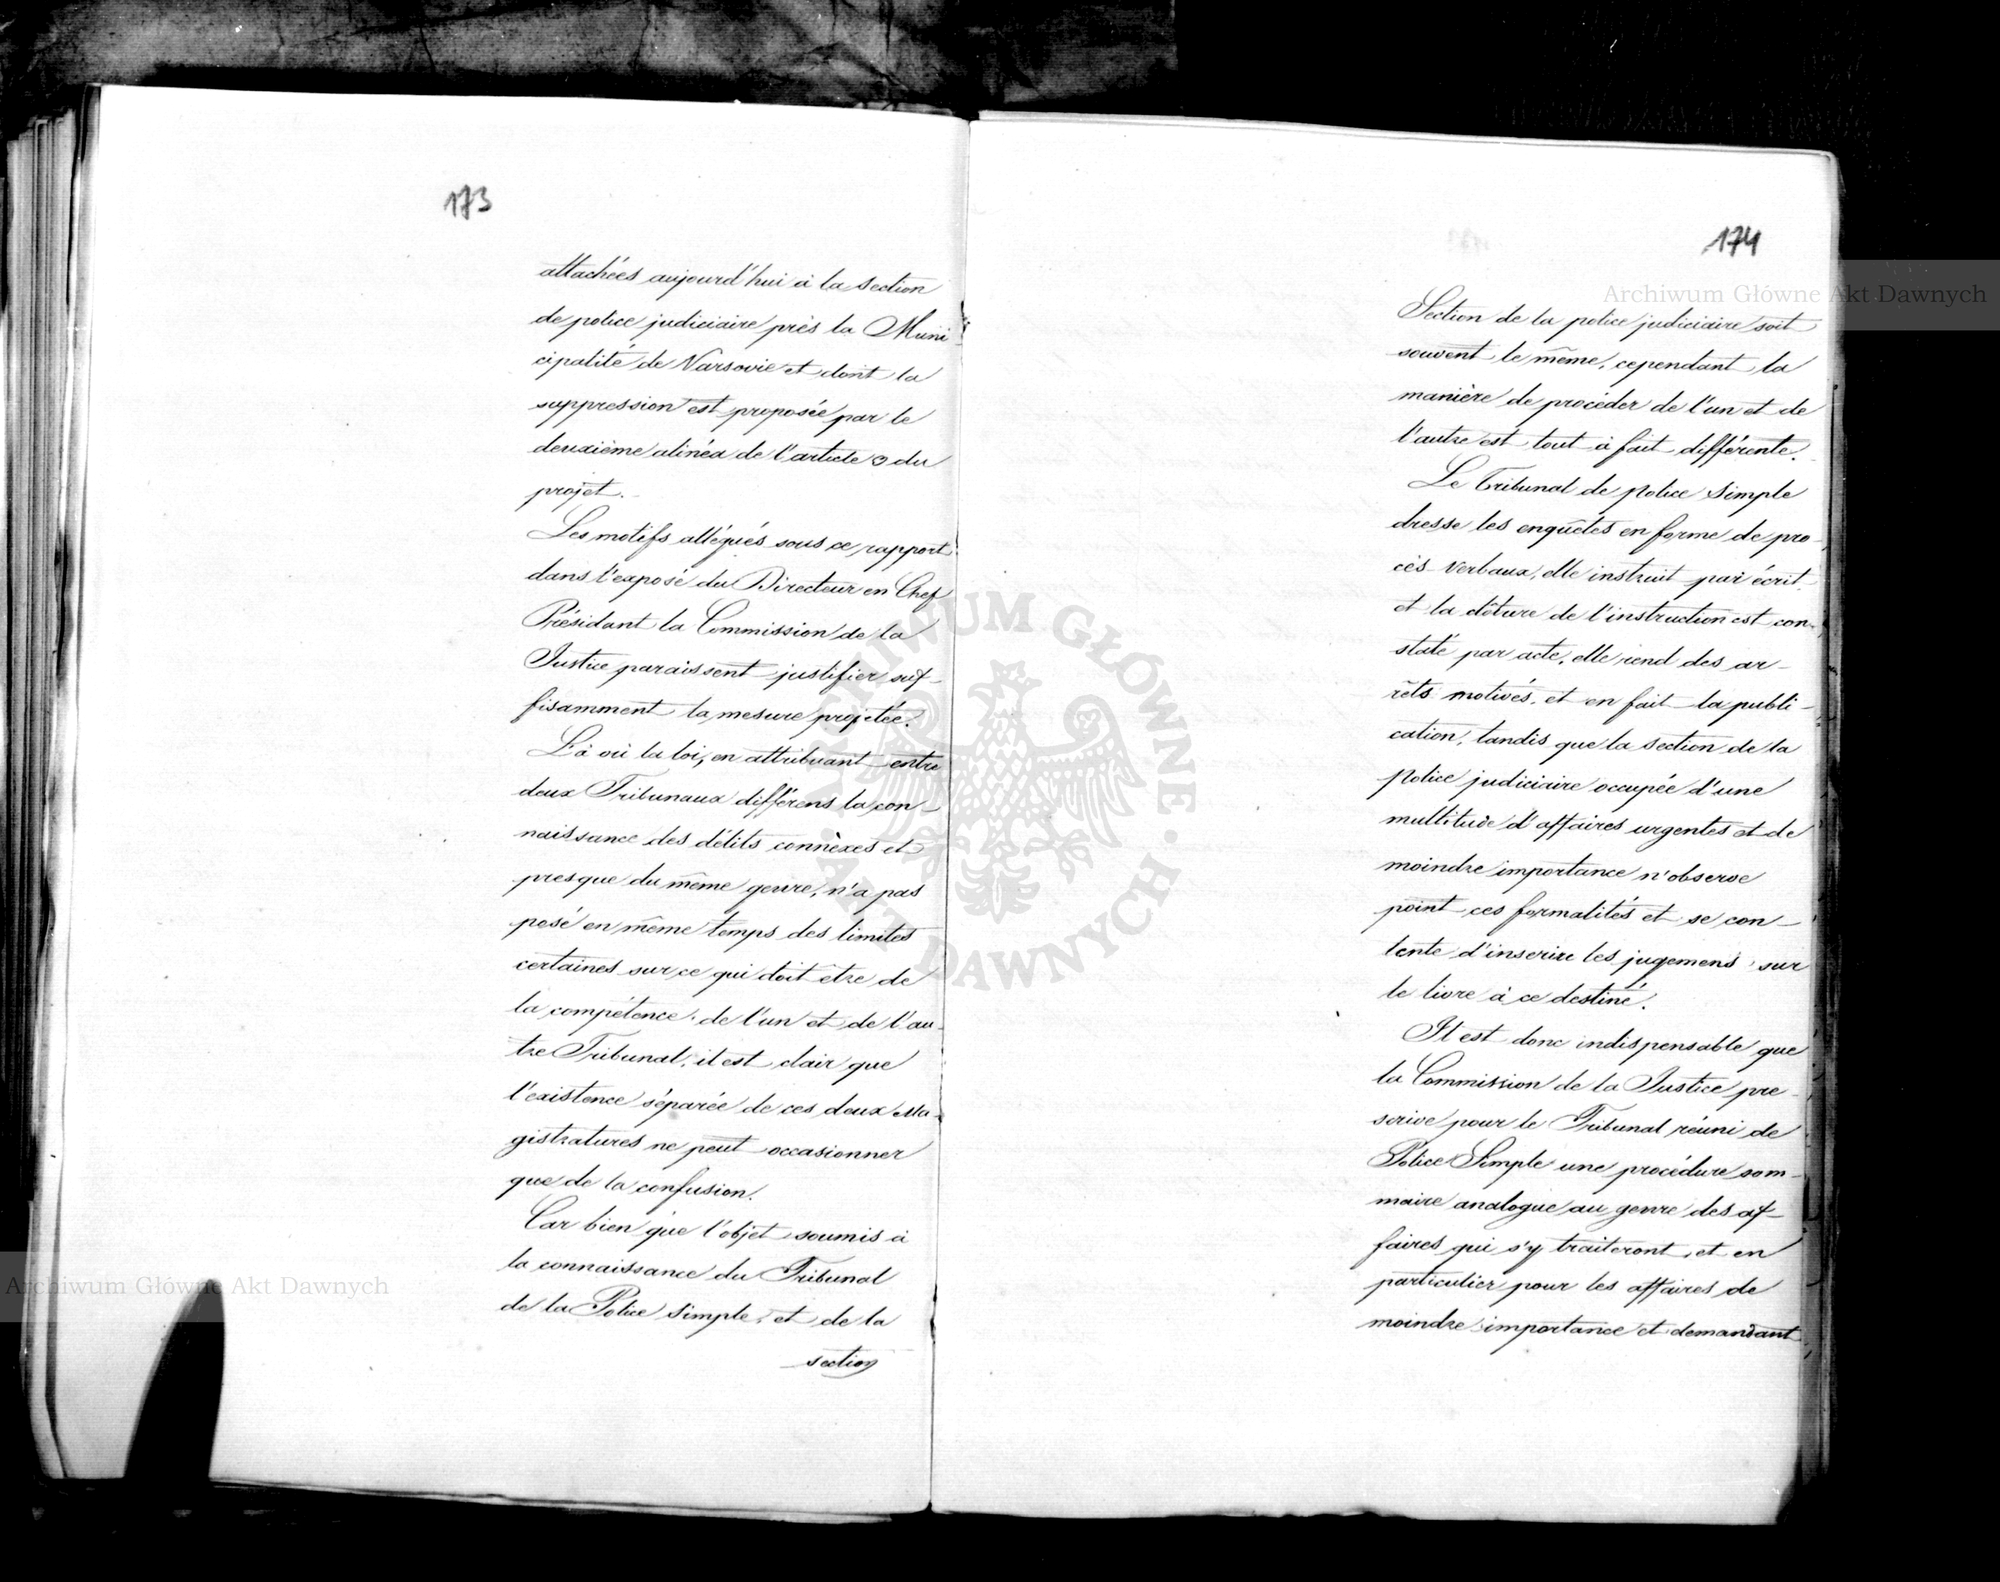 173
attachées aujourd'hui à la section
de police judiciaire près la Muni
cipalité de Varsovie et dont la
suppression est proposée par le
deuxième alinéa de l'article 3 du
projet.
Les motifs allégués sous ce rapport
dans l'exposé du Directeur en Chef
Présidant la Commission de la
Justice paraissent justifier suf-
fisamment la mesure projetée.
Là où la loi, en attribuant entre
deux Tribunaux différens la con-
naissance des délits connèxes et
presque du même genre, n'a pas
posé en même temps des limites
certaines sur ce qui doit etre de
la compétence de l'un et de l'au-
tre Tribunal, il est clair que
l'existence séparée de ces deux Ma-
gistratures ne peut occasionner
que de la confusion.
Car bien que l'objet soumis à
la connaissance du Tribunal
de la Police simple, et de la
section
174
Section de la police judiciaire soit
souvent le même, cependant la
manière de procéder de l'un et de
l'autre est tout à fait différente.
Le Tribunal de police simple
dresse les enquêtes en forme de pro-
cès verbaux, elle instruit par écrit
et la clôture de l'instruction est con-
staté par acte, elle rend des ar-
rêts motivés, et en fait la publi-
cation, tandis que la section de la
police judiciaire occupée d'une
multitude d'affaires urgentes et de
moindre importance n'observe
point ces formalités et se con-
tente d'inscrire les jugemens sur
le livre à ce destiné.
Il est donc indispensable que
la Commission de la Justice pre-
scrive pour le Tribunal réuni de
Police Simple une procédure som-
maire analogue au genre des af-
faires qui s'y traiteront, et en
particulier pour les affaires de
moindre importance et demandant
Archiwum Główne Akt Dawnych
Archiwum Główne Akt Dawnych
ARCHIWUM GŁÓWNE AKT DAWNYCH